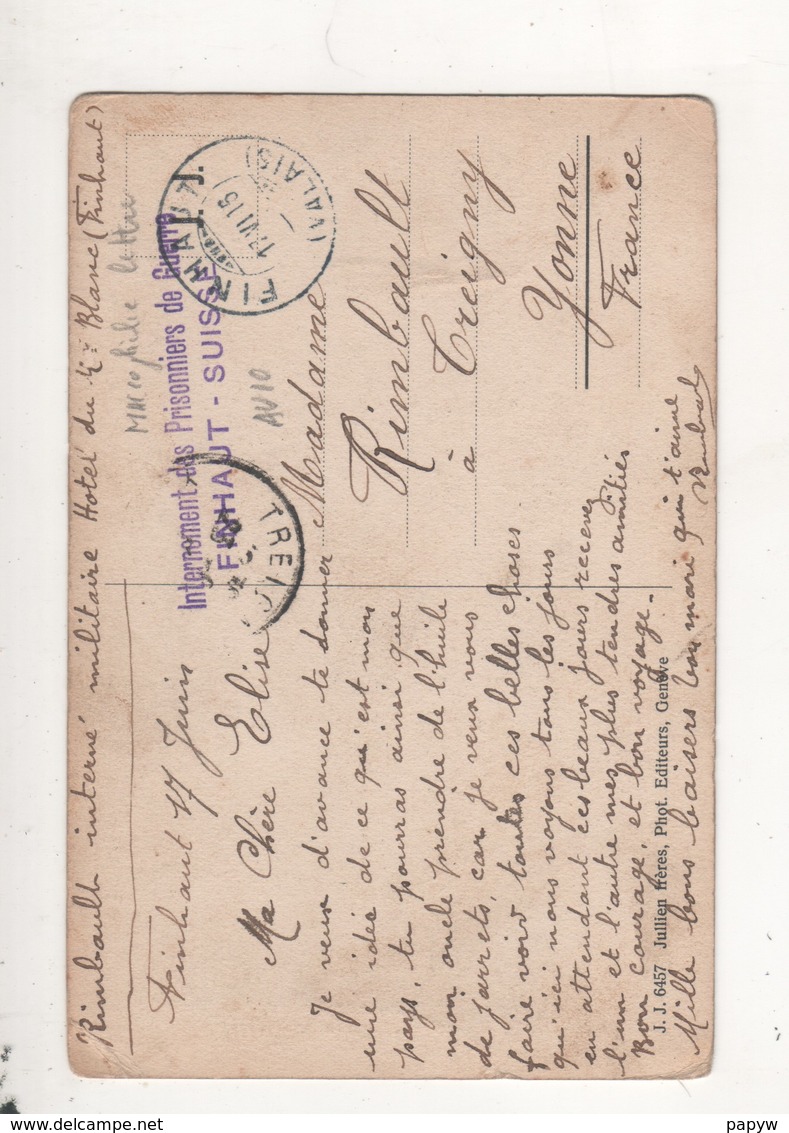 Rimbault interné militaire Hotel du Mt Blanc (Finhaut)
Finhaut 17 Juin
Ma Chère Elise
Je veux d'avance te donner
une idée de ce qu'est mon
pays, tu pourras ainsi que
mon oncle prendre de l'huile
de jarrets, car je veux vous
faire voir toutes ces belles choses
qu'ici nous voyons tous les jours
en attendant ces beaux jours recevez
l'un et l'autre mes plus tendres amitiés
Bon courage, et bon voyage.
Mille bons baisers ton mari qui t'aime
Rimbault
J. J. 6457 Jullien frères, Phot. Editeurs, Genève
Internement des Prisonniers de Guerre
FINHAUT - SUISSE
J. J.
(VALAIS)
TREIG
AV10
Madame
Rimbault
à Treigny
Yonne
France
papyw